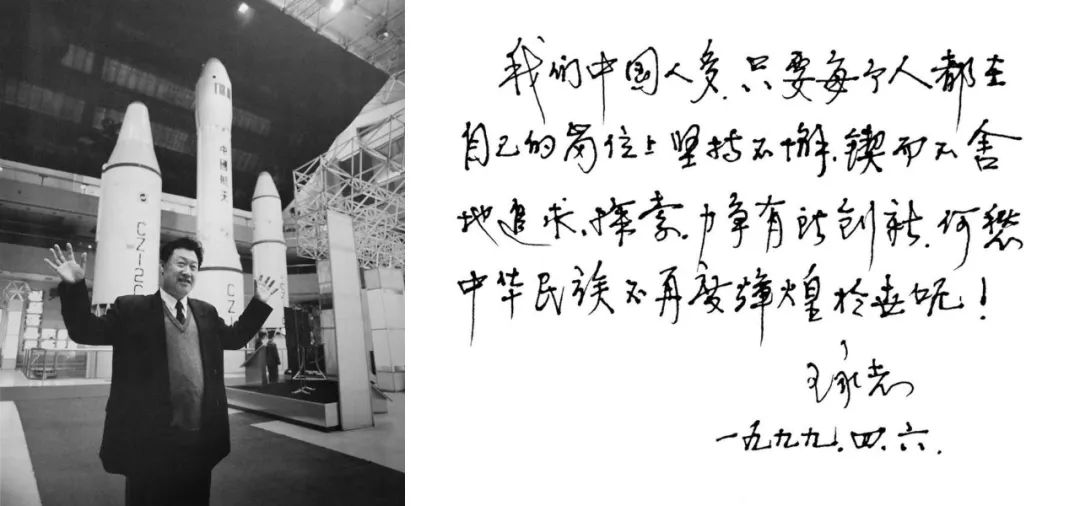 中國航天
我们中国人多,只要每个人都在
自己的岗位上坚持不懈,锲而不舍
地追求、探索,力争有所创新,何愁
中华民族不再度辉煌於世呢!
王永志
一九九九.四.六.